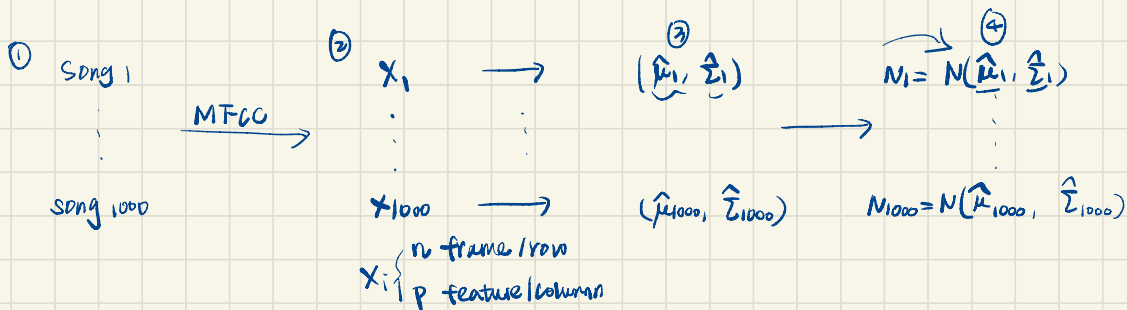 ① Song 1
MFCC
song 1000
② X₁
X₁₀₀₀
Xᵢ { n frame/row
p feature/column
③ (μ̂₁, Σ̂₁)
(μ̂₁₀₀₀, Σ̂₁₀₀₀)
④ N₁ = N(μ̂₁, Σ̂₁)
N₁₀₀₀ = N(μ̂₁₀₀₀, Σ̂₁₀₀₀)